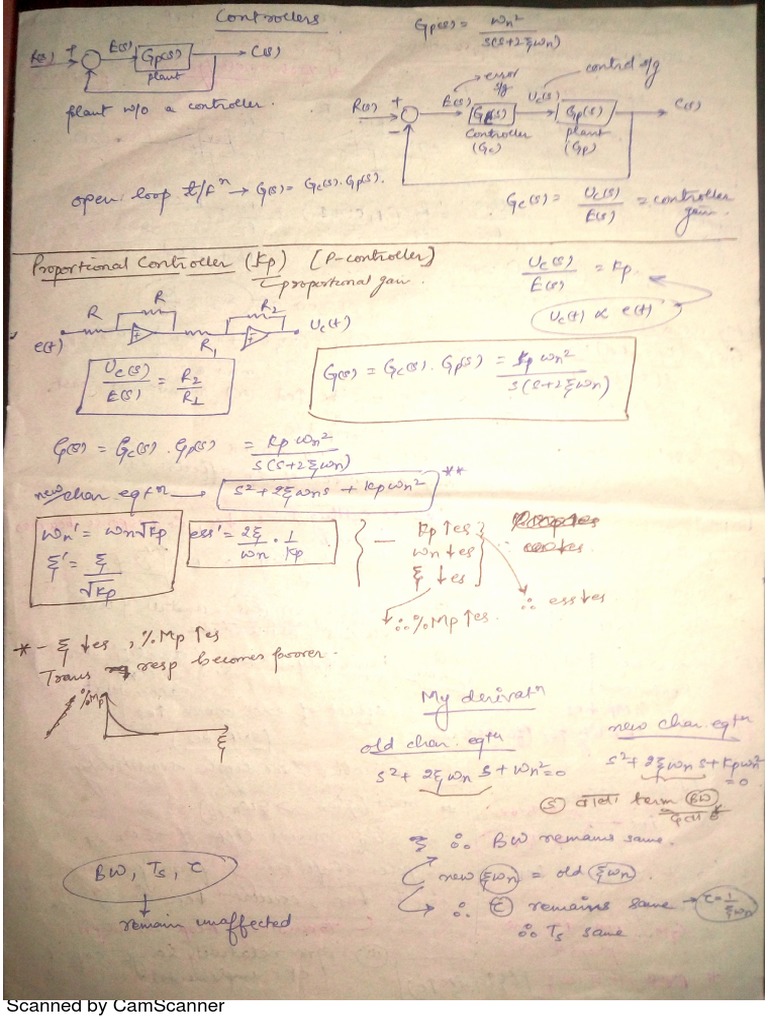 Controllers
Gp(s) = ωn² / s(s+2ξωn)
R(s) + E(s) Gp(s) C(s)
plant
plant w/o a controller.
error s/g
control s/g
R(s) + − E(s) Gc(s) Uc(s) Gp(s) C(s)
controller (Gc)
plant (Gp)
open loop t/fⁿ → G(s) = Gc(s).Gp(s).
Gc(s) = Uc(s) / E(s) = controller gain.
Proportional Controller (Kp) [P-controller]
proportional gain.
Uc(s) / E(s) = Kp
Uc(t) ∝ e(t)
R R R1 R2
e(t) Uc(t)
Uc(s) / E(s) = R2 / R1
G(s) = Gc(s).Gp(s) = Kp ωn² / s(s+2ξωn)
G(s) = Gc(s).Gp(s) = Kp ωn² / s(s+2ξωn)
new char eqtⁿ → s²+2ξωns + Kpωn² **
ωn' = ωn√Kp
ξ' = ξ / √Kp
ess' = 2ξ / ωn . 1 / Kp
− Kp ↑es
ωn ↓es
ξ ↓es
∴ %Mp ↑es.
∴ ess↓es
* - ξ ↓es , %Mp ↑es
Trans resp becomes poorer.
%Mp
ξ
My derivatⁿ
old char. eqtⁿ
s²+ 2ξωn s + ωn²=0
new char. eqtⁿ
s²+ 2ξωn s+ Kpωn² = 0
(s) वाला term BW देता है
∴ BW remains same.
new ξωn = old ξωn.
∴ τ remains same → τ = 1 / ξωn
∴ Ts same
BW, Ts, τ
remain unaffected
Scanned by CamScanner